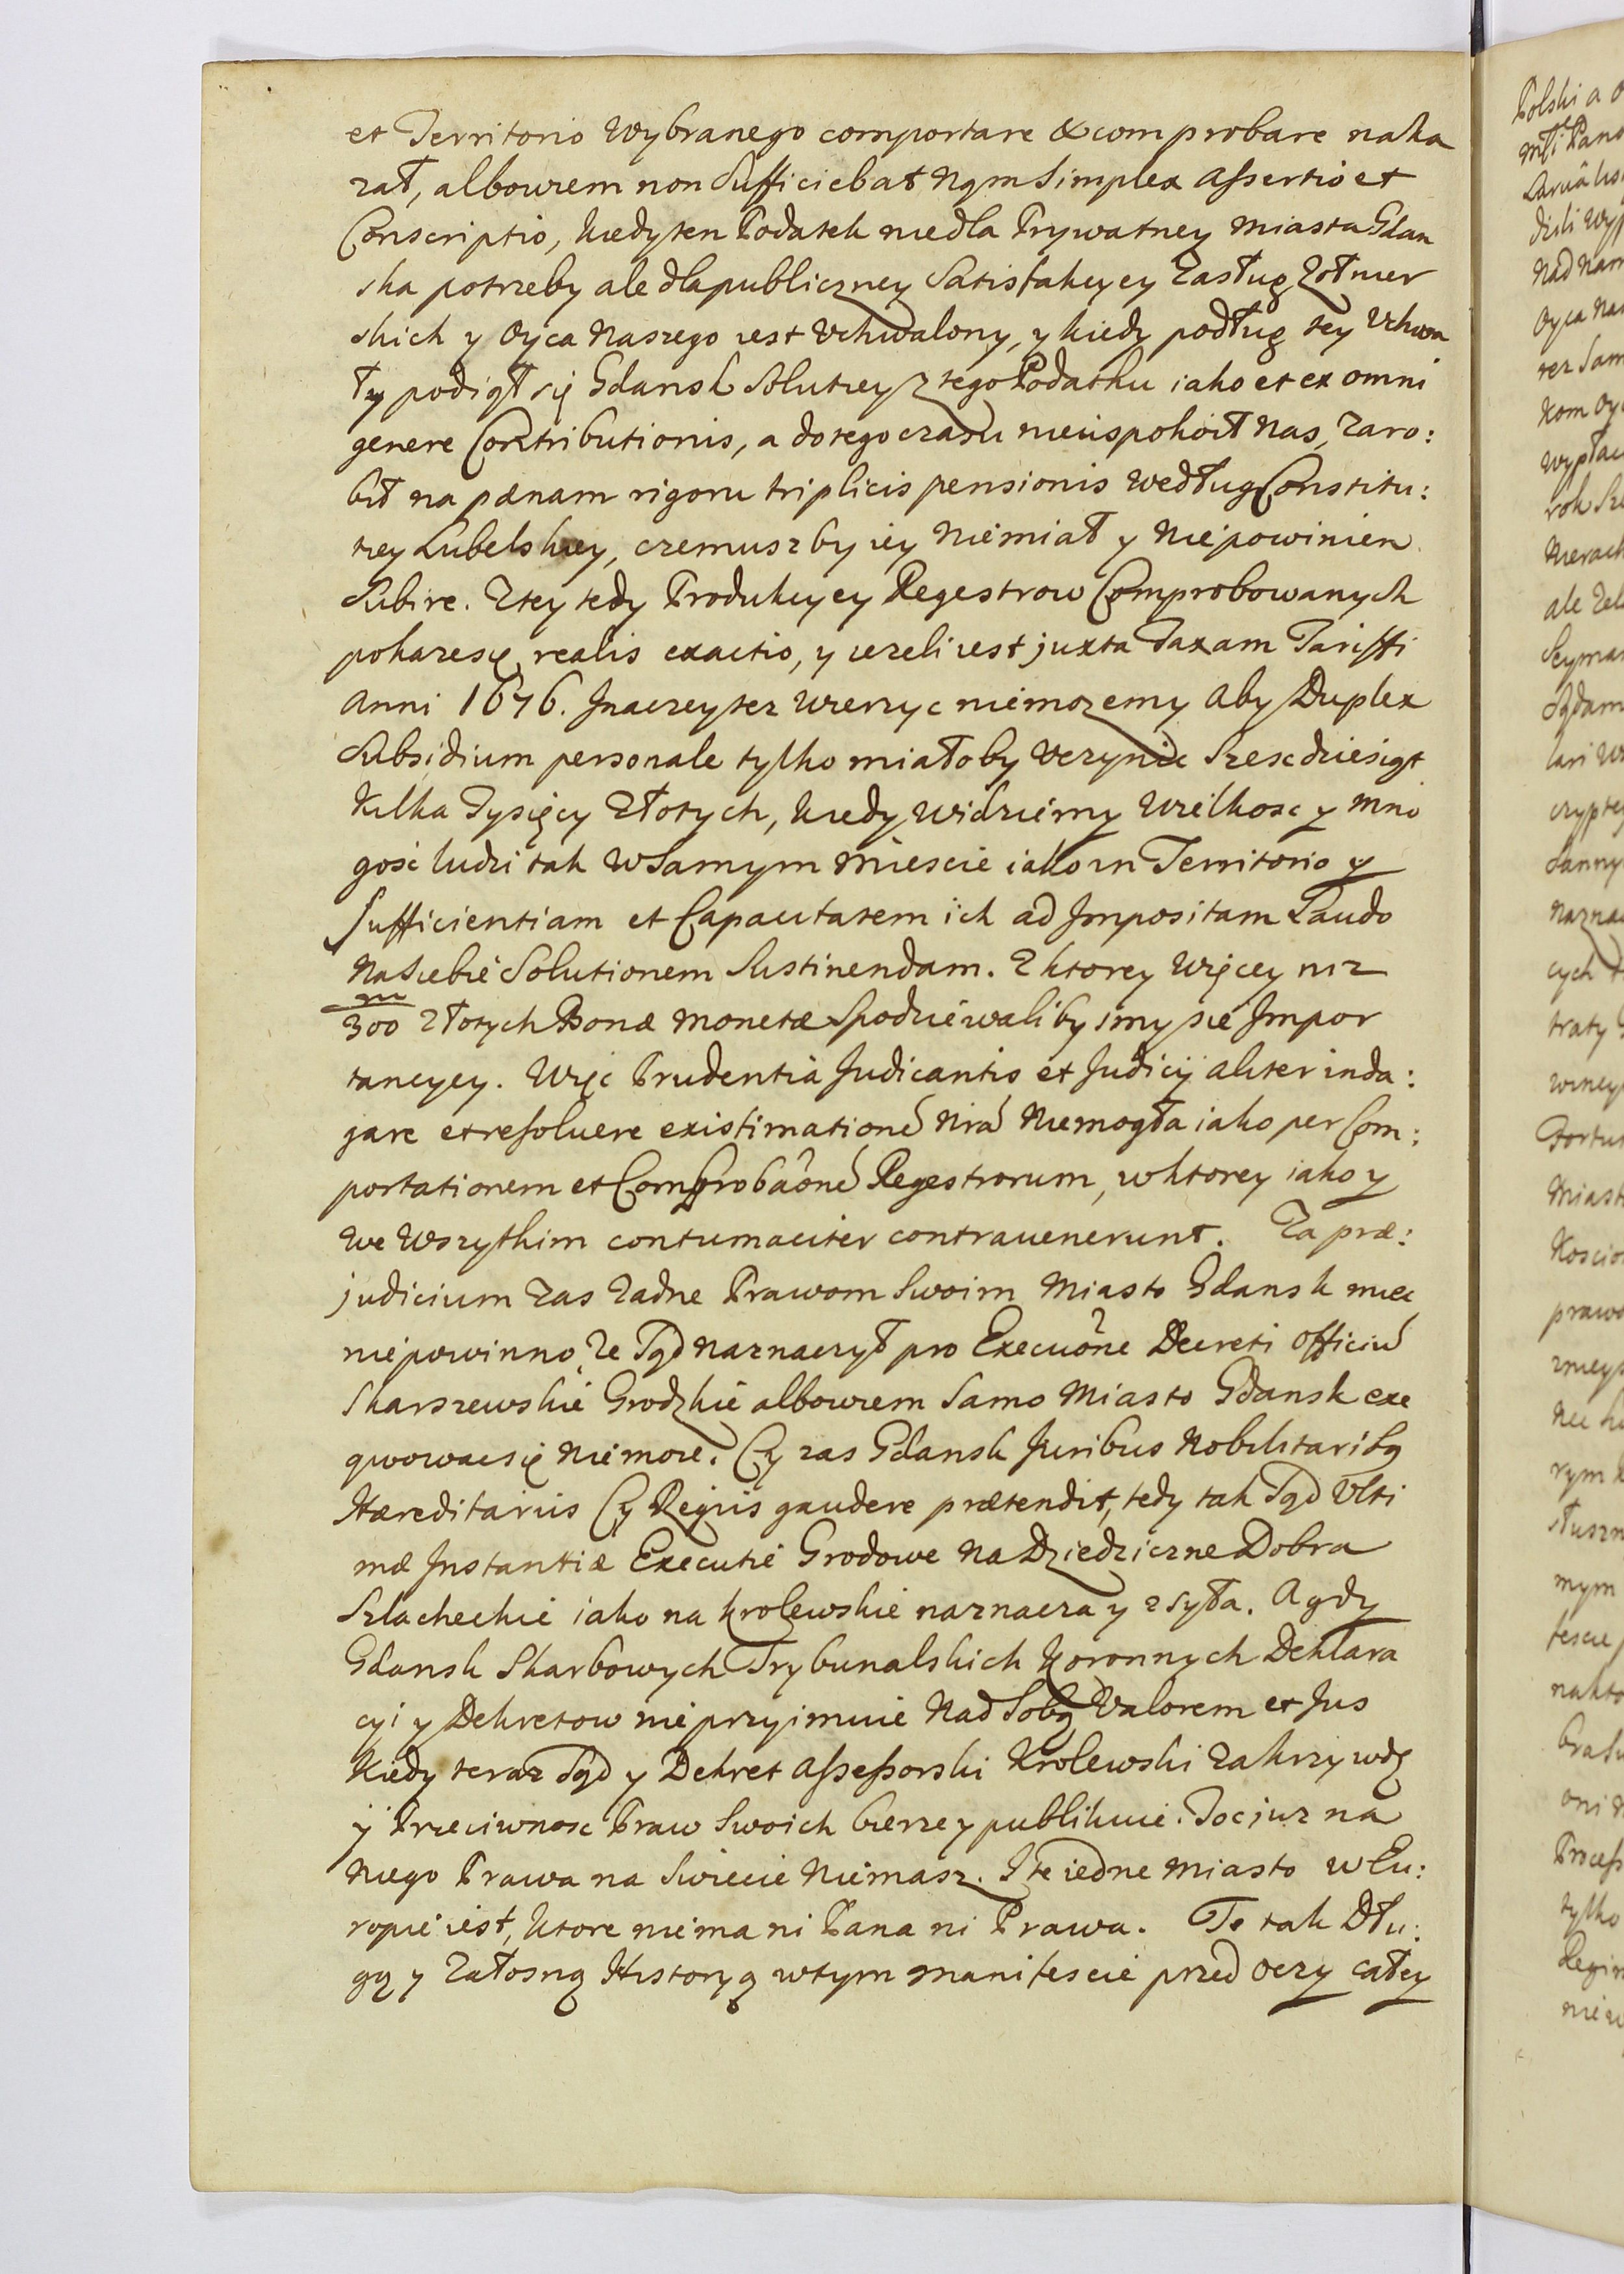 et Territorio Wybranego comportare & comprobare naka
zał, albowiem non Sufficiebat Nqm Simplex Assertio et
Conscriptio, kiedy ten Podatek nie dla Prywatney Miasta Gdan
ska potrzeby ale dla publiczney Satisfakcyey Zasług Zołnier
skich y Oyca Naszego iest Vchwalony, y kiedy podług tey Vchwa
ły podiął się Gdansk Solutiey z tego Podatku iako et ex omni
genere Contributionis, a do tego czasu nieuspokoił Nas, Zaro:
bił na pænam rigoru triplicis pensionis według Constitu:
tiey Lubelskiey, czemusz by iey Niemiał y Niepowinien
Subire. Z tey tedy Produkcyey Regestrow Comprobowanych
pokaze się realis exactio, y iezeli iest juxta Taxam Tariffi
Anni 1676. Inaczey tez wierzyc niemozemy Aby Duplex
Subsidium personale tylko miałoby Vczynic Szescdziesiąt
Kilka Tysięcy Złotych, kiedy widziemy Wielkosc y Mno
gosc ludzi tak W Samym Miescie iako in Territorio y
Sufficientiam et Capacitatem ich ad Impositam Laudo
Na Siebie Solutionem Sustinendam. Z ktorey Więcey niz
m
300 złotych Bonæ Monetæ Spodziewalibysmy się Impor
tancyey. Więc Prudentia Judicantis et Judicij aliter inda:
gare et resoluere existimationé Nrá Niemogła iako per Com:
portationem et Comprobaôné Regestrorum, w ktorey iako y
We Wszytkim contumaciter contrauenerunt. Za præ:
judicium Zas Zadne Prawom Swoim Miasto Gdansk miec
niepowinno, Ze Sąd Naznaczył pro Execuône Decreti Officiú
Skarszewskie Grodzkie albowiem Samo Miasto Gdansk exe
qwowac się Niemoze. Czy zas Gdansk Juribus Nobilitaribq
Hæreditarijs Czy Regijs gaudere prætendit, tedy tak Sąd Vlti
mæ Instantiæ Executie Grodowe Na Dziedziczne Dobra
Szlacheckie iako na krolewskie naznacza y zsyła. A gdy
Gdansk Skarbowych Trybunalskich Koronnych Deklara
cyi y Dekretow nieprzyimuie Nad Sobą Valorem et Jus
Kiedy teraz Sąd y Dekret Assessorski Krolewski Za krzywdę
y Przeciwnosc Praw Swoich bierze y publikuie. Toc juz na
niego Prawa na Swiecie Niemasz. I te iedne Miasto w Eu:
ropie iest, ktore niema ni Pana ni Prawa. Te tak Dłu:
gą y Załosną Historyą w tym Manifescie przed oczy całey